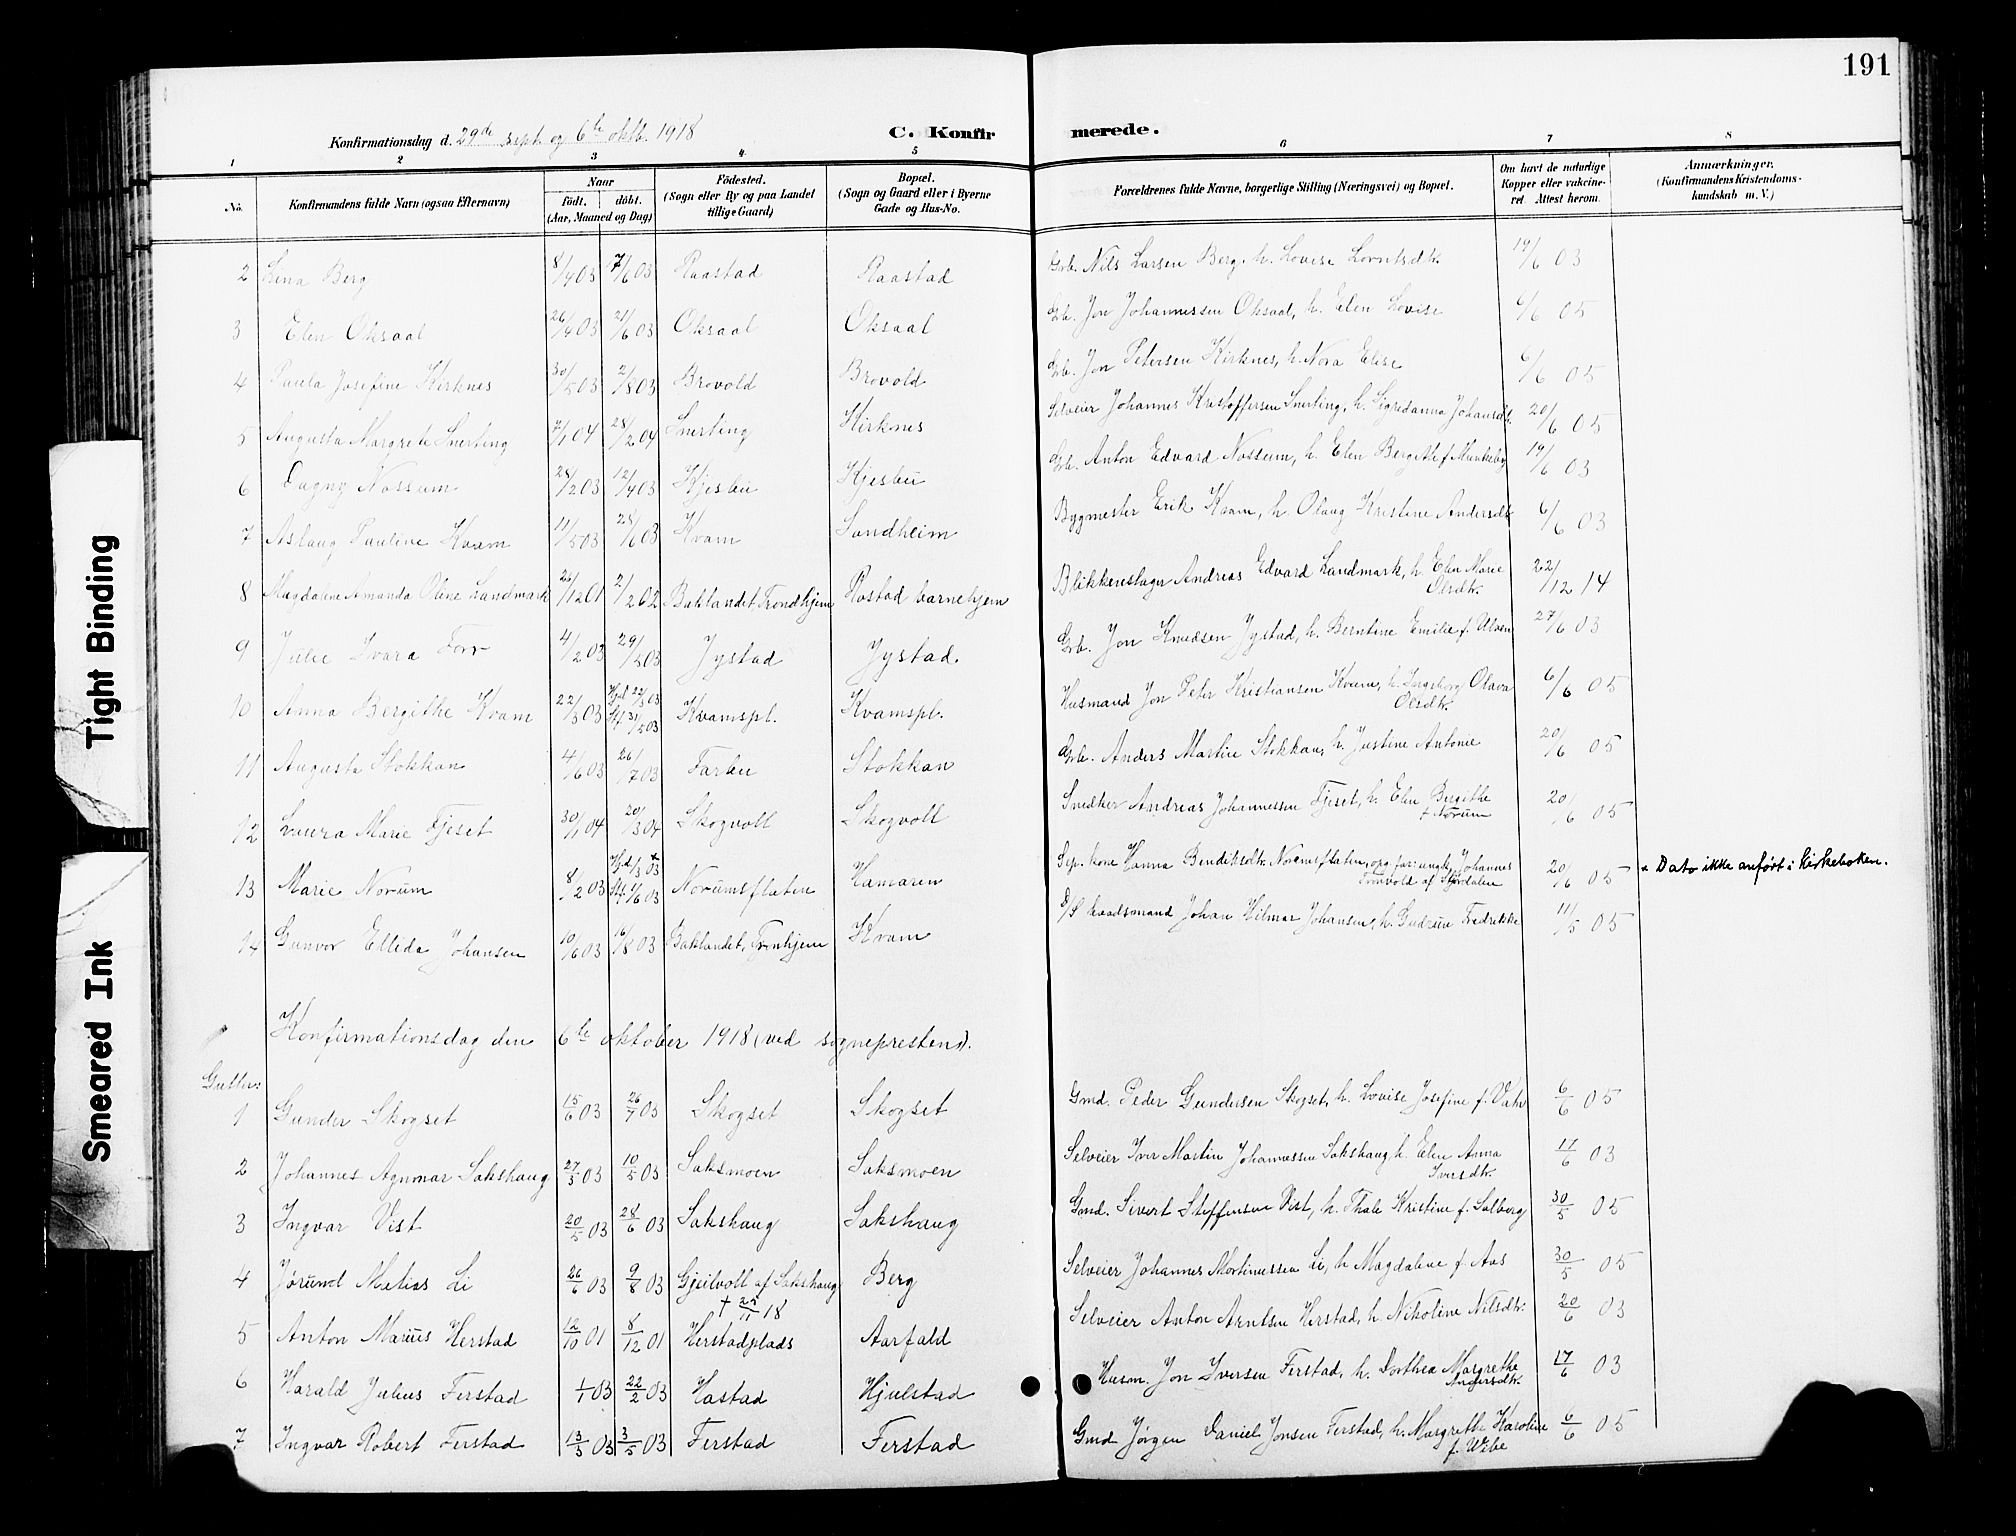 191
Konfirmationsdag d. 29de sept. og 6te oktb. 1918
C. Konfirmerede.
1 2 3 4 5 6 7 8
No. Konfirmandens fulde Navn (ogsaa Efternavn) Naar født. døbt. (Aar, Maaned og Dag) Födested. (Sogn eller By og paa Landet tillige Gaard) Bopæl. (Sogn og Gaard eller i Byerne Gade og Hus-No. Forældrenes fulde Navne, borgerlige Stilling (Næringsvei) og Bopæl. Om havt de naturlige Kopper eller vakcineret. Attest herom. Anmærkninger. (Konfirmandens Kristendomskundskab m. V.)
2 Lina Berg 8/4 03 7/6 03 Raastad Raastad Grb. Nils Larsen Berg, h. Lovise Lorntsdtr. 19/6 03
3 Elen Oksaal 26/4 03 21/6 03 Oksaal Oksaal Grb. Jon Johannessen Oksaal, h. Elen Lovise 6/6 05
4 Paula Josefine Kirknes 30/5 03 2/8 03 Brovold Brovold Grb. Jon Petersen Kirknes, h. Nora Elise 6/6 05
5 Augusta Margrete Snerting 7/1 04 28/2 04 Snerting Kirknes Selveier Johannes Kristoffersen Snerting, h. Sigridanna Johansdtr. 20/6 05
6 Dagny Nossum 28/2 03 12/4 03 Kjesbu Kjesbu Grb. Anton Edvard Nossum, h. Elen Bergitte f. Munkeby 19/6 03
7 Aslaug Pauline Kvam 11/5 03 28/6 03 Kvam Sundheim Bygmester Erik Kvam, h. Olaug Kristine Andersdtr. 6/6 03
8 Magdalene Amanda Oline Landmark 26/12 01 2/2 62 Baklandet, Trondhjem Rostad barnehjem Blikkenslager Andreas Edvard Landmark, h. Elen Marie Olsdtr. 22/12 14
9 Julie Ivara Forr 4/2 03 29/3 03 Jystad Jystad. Grb. Jon Knudsen Jystad, h. Berntine Emilie f. Ulven 27/6 03
10 Anna Bergithe Kvam 22/3 03 Hjd. 22/3 03 Stf. 31/5 03 Kvamspl. Kvamspl. Husmand Jon Peter Kristiansen Kvam, h. Ingeborg Olava Olsdtr. 6/6 05
11 Augusta Stokkan 4/6 03 26/7 03 Farbu Stokkan Grb. Anders Martin Stokkan, h. Justine Antonie 20/6 05
12 Laura Marie Fjeset 30/1 04 20/3 04 Skogvoll Skogvoll Snedker Andreas Johannessen Fjeset, h. Elen Bergithe f. Norum 20/6 05
13 Marie Norum 8/2 03 Hjd. /3 03 × Stf. 1/6 03 Norumsflaten Hamaren Sep. kone Hanna Bendiksdtr. Norumsflaten, og far: ungk. Johannes Tronvold af Stjørdalen 20/6 05 × Dato ikke anført i kirkeboken.
14 Gunvor Ellida Johansen 10/6 03 16/8 03 Baklandet, Tronhjem Kvam D/S baadsmand Johan Hilmar Johansen, h. Gudrun Fredrikke 11/5 05
Konfirmationsdag den 6te oktober 1918 (ved sognepresten).
Gutter:
1 Gunder Skogset 15/6 03 26/7 03 Skogset Skogset Gmd. Peder Gundersen Skogset, h. Lovise Josefine f. 6/6 05
2 Johannes Agnmar Sakshaug 27/3 03 10/5 03 Saksmoen Saksmoen Selveier Iver Martin Johannessen Sakshaug, h. Elen Anna Iversdtr. 17/6 03
3 Ingvar Vist 20/5 03 28/6 03 Sakshaug Sakshaug Gmd. Sivert Steffensen Vist, h. Thale Kristine f. Salberg 30/5 05
4 Jørund Matias Li 26/6 03 9/8 03 Gjeilvoll af Sakshaug Berg Selveier Johannes Martinussen Li, h. Magdalene f. Aas 30/5 05
† 25/11 18
5 Anton Marius Herstad 12/10 01 8/12 01 Herstadplads Aarfald Selveier Anton Arntsen Herstad, h. Nikoline Nilsdtr. 20/6 03
6 Harald Julius Ferstad 1/1 03 22/2 03 Hastad Hjulstad Husm. Jon Iversen Ferstad, h. Dorthea Margrethe Andersdtr. 17/6 03
7 Ingvar Robert Ferstad 13/3 03 3/5 03 Ferstad Ferstad Gmd. Jørgen Daniel Jonsen Ferstad, h. Margrethe Karoline f. Wibe 6/6 05
Tight Binding
Smeared Ink